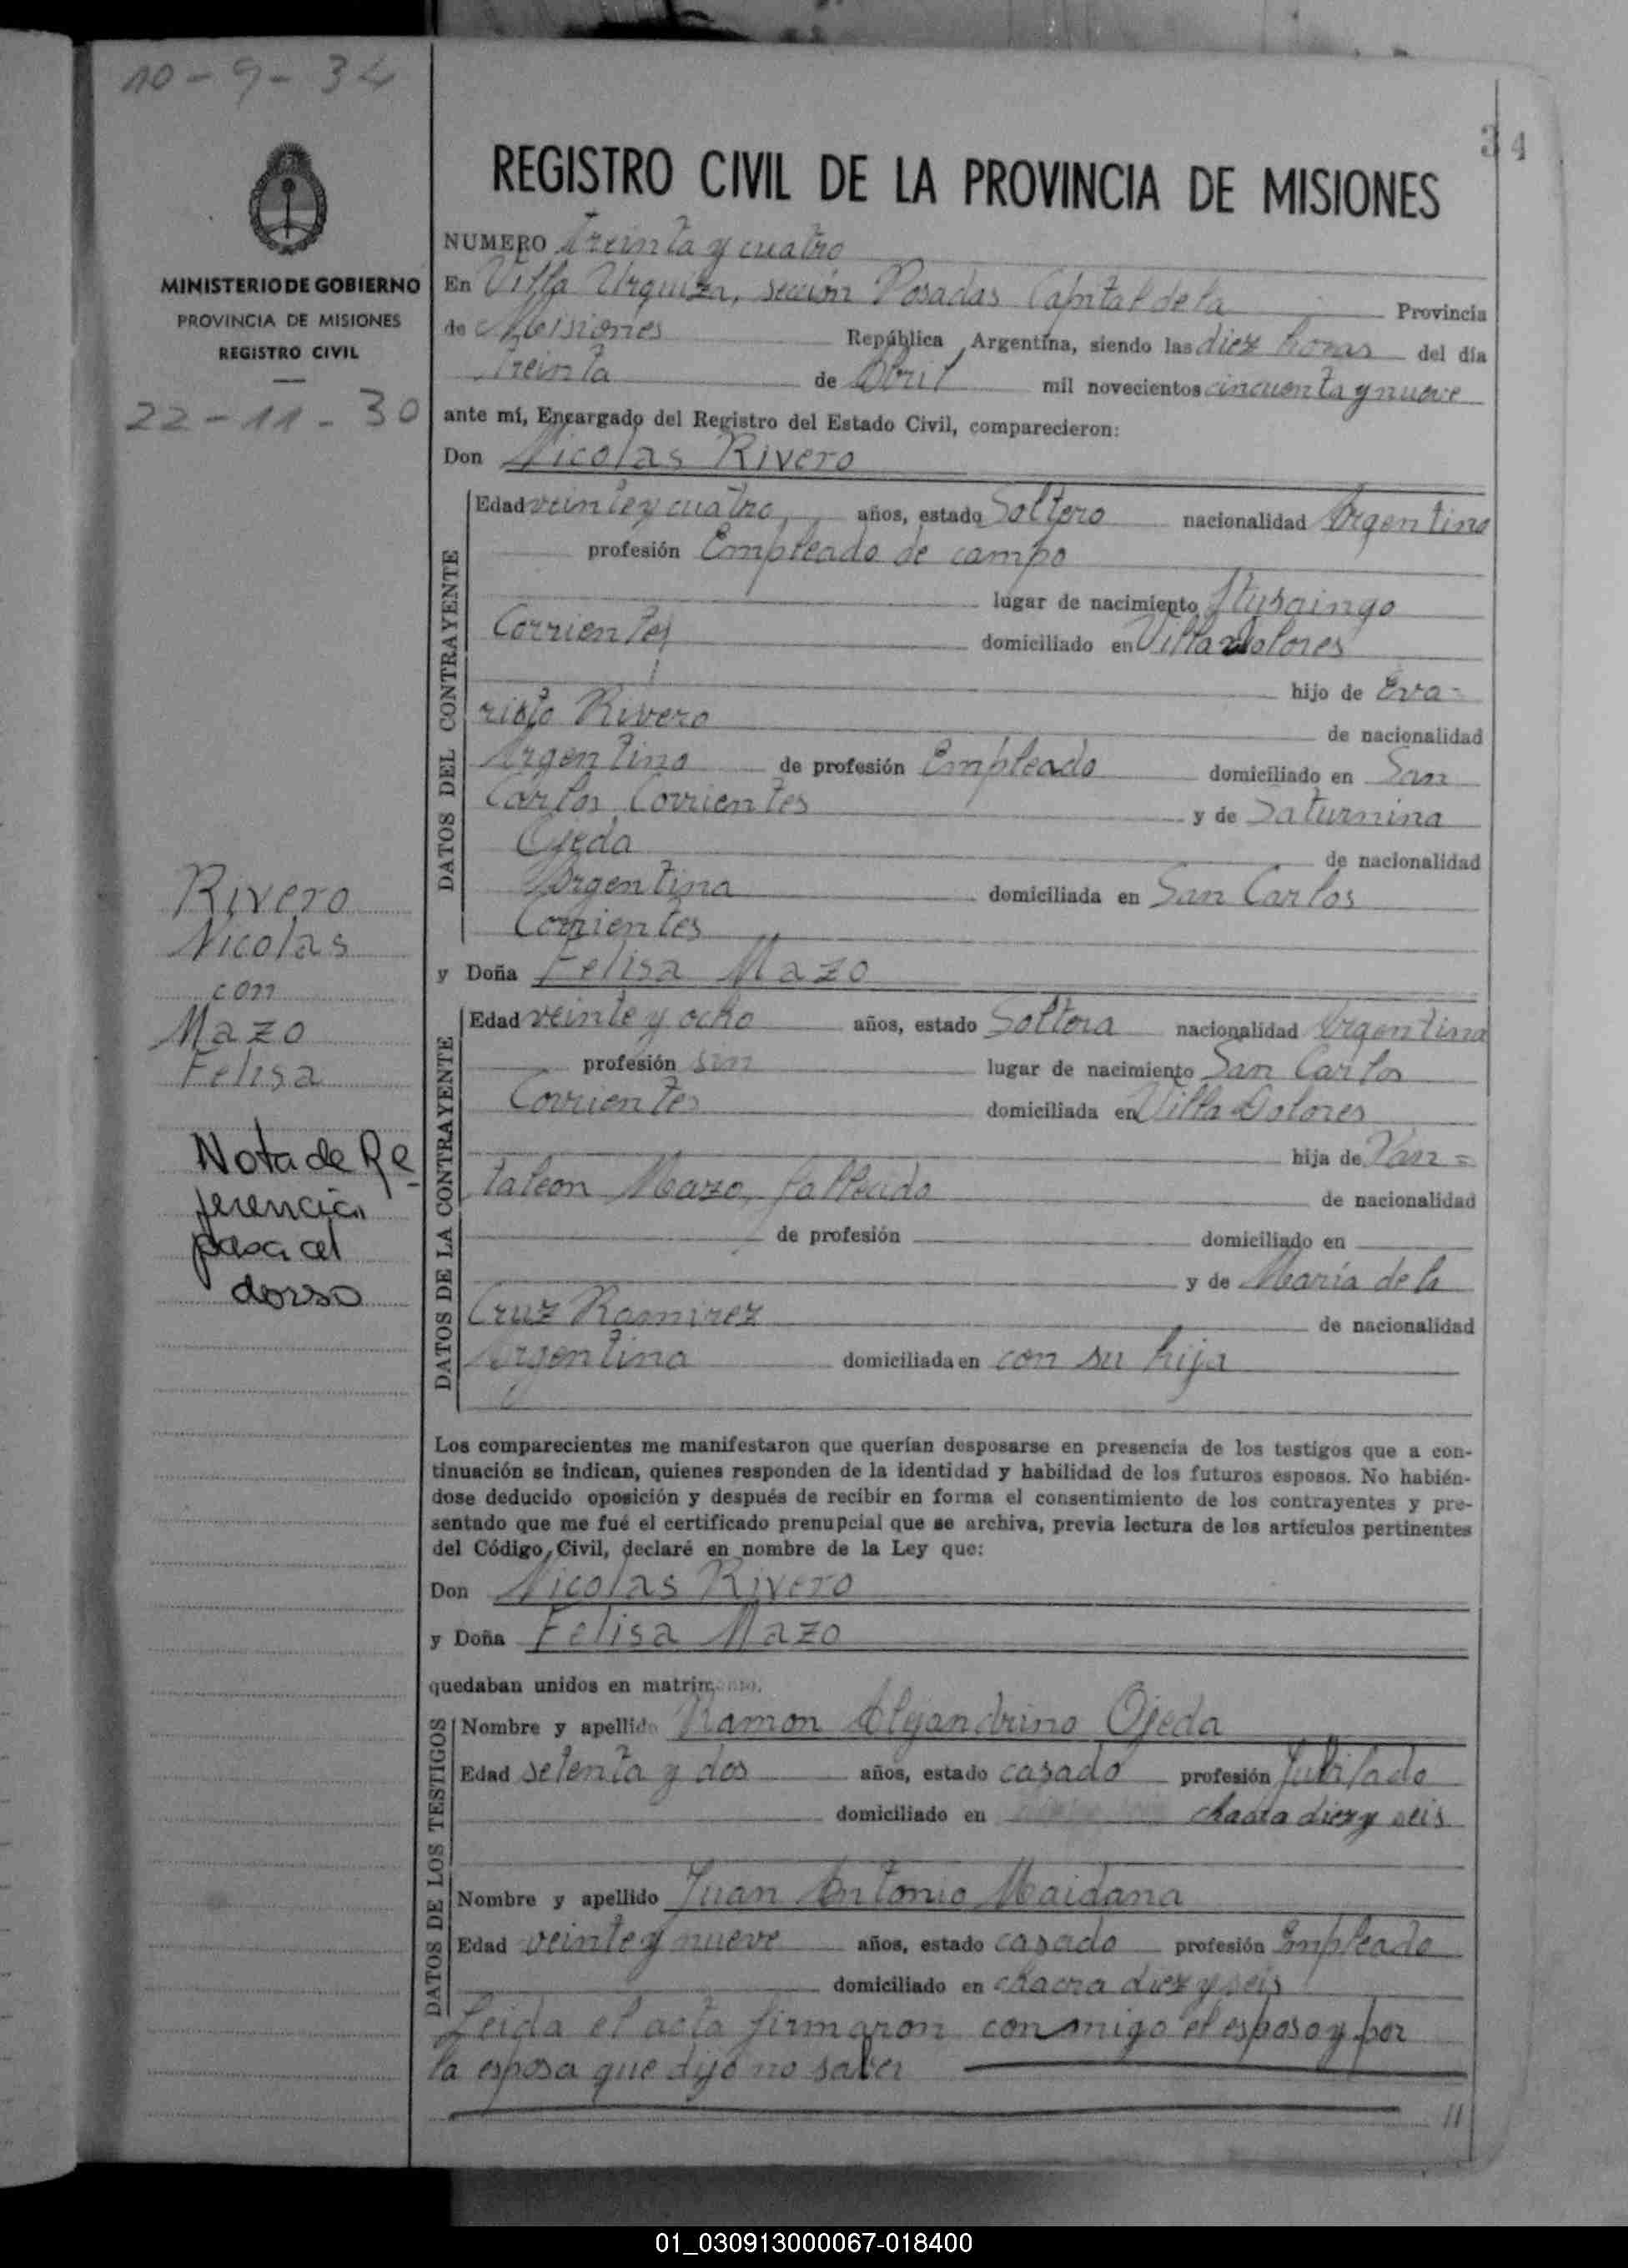 10-9-34
34
REGISTRO CIVIL DE LA PROVINCIA DE MISIONES
MINISTERIO DE GOBIERNO
PROVINCIA DE MISIONES
REGISTRO CIVIL
22-11-30
NUMERO Treinta y cuatro
En Villa Urquiza, sección Posadas Capital de la Provincia
de Misiones República Argentina, siendo las diez horas del día
Treinta de Abril mil novecientos cincuenta y nueve
ante mí, Encargado del Registro del Estado Civil, comparecieron:
Don Nicolas Rivero
DATOS DEL CONTRAYENTE
Edad veinte y cuatro años, estado Soltero nacionalidad Argentino
profesión Empleado de campo
lugar de nacimiento Ityzaingo
Corrientes domiciliado en Villa Dolores
hijo de Eva-
risto Rivero de nacionalidad
Argentino de profesión Empleado domiciliado en San
Carlos Corrientes y de Saturnina
Ojeda de nacionalidad
Argentina domiciliada en San Carlos
Corrientes
y Doña Felisa Mazo
DATOS DE LA CONTRAYENTE
Edad veinte y ocho años, estado Soltera nacionalidad Argentina
profesión sin lugar de nacimiento San Carlos
Corrientes domiciliada en Villa Dolores
hija de Pan=
taleon Mazo, fallecido de nacionalidad
de profesión domiciliado en
y de María de la
Cruz Ramirez de nacionalidad
Argentina domiciliada en con su hija
Rivero
Nicolas
con
Mazo
Felisa
Nota de Re
ferencia
pasa al
dorso
Los comparecientes me manifestaron que querían desposarse en presencia de los testigos que a con-
tinuación se indican, quienes responden de la identidad y habilidad de los futuros esposos. No habién-
dose deducido oposición y después de recibir en forma el consentimiento de los contrayentes y pre-
sentado que me fué el certificado prenupcial que se archiva, previa lectura de los artículos pertinentes
del Código Civil, declaré en nombre de la Ley que:
Don Nicolas Rivero
y Doña Felisa Mazo
quedaban unidos en matrimonio.
DATOS DE LOS TESTIGOS
Nombre y apellido Ramon Alejandrino Ojeda
Edad setenta y dos años, estado casado profesión Jubilado
domiciliado en chacra diez y seis
Nombre y apellido Juan Antonio Maidana
Edad veinte y nueve años, estado casado profesión Empleado
domiciliado en chacra diez y seis
Leida el acta firmaron conmigo el esposo y por
la esposa que dijo no saber
//
01_030913000067-018400